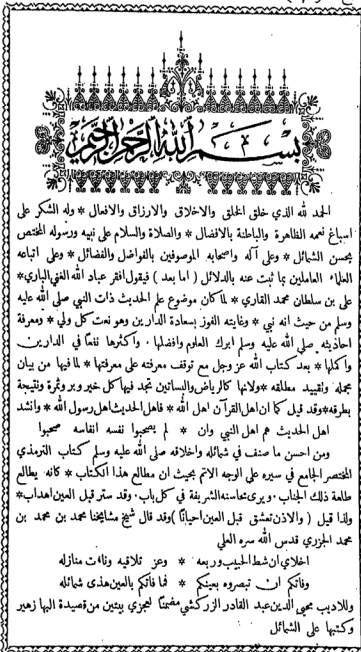 بسم الله الرحمن الرحيم
الحمد لله الذي خلق الخلق والاخلاق والارزاق والافعال * وله الشكر على
اسباغ نعمه الظاهرة والباطنة بالافضال * والصلاة والسلام على نبيه ورسوله المختص
بحسن الشمائل * وعلى آله واصحابه الموصوفين بالفواضل والفضائل * وعلى اتباعه
العلماء العاملين بما ثبت عنه بالدلائل ( اما بعد ) فيقول افقر عباد الله الغني الباري *
علي بن سلطان محمد القاري * لما كان موضوع علم الحديث ذات النبي صلى الله عليه
وسلم من حيث انه نبي * وغايته الفوز بسعادة الدارين وهو نعت كل ولي * ومعرفة
احاديثه صلى الله عليه وسلم ابرك العلوم وافضلها * واكثرها نفعا في الدارين
واكملها * بعد كتاب الله عز وجل مع توقف معرفته على معرفتها * لما فيها من بيان
مجمله وتقييد مطلقه * ولانها كالرياض والبساتين تجد فيها كل خير وبر وثمرة ونتيجة
بطرقه * وقد قيل كما ان اهل القرآن اهل الله * فاهل الحديث اهل رسول الله * وانشد
اهل الحديث هم اهل النبي وان * لم يصحبوا نفسه انفاسه صحبوا
ومن احسن ما صنف في شمائله واخلاقه صلى الله عليه وسلم كتاب الترمذي
المختصر الجامع في سيره على الوجه الاتم بحيث ان مطالع هذا الكتاب * كانه يطالع
طلعة ذلك الجناب * ويرى محاسنه الشريفة في كل باب * وقد ستر قبل العين اهداب *
ولذا قيل ( والاذن تعشق قبل العين احيانا ) وقد قال شيخ مشايخنا محمد بن محمد بن
محمد الجزري قدس الله سره العلي
اخلاي ان شط الحبيب وربعه * وعز تلاقيه وناءت منازله
وفاتكم ان تبصروه بعينكم * فما فاتكم بالعين هذي شمائله
وللاديب محيي الدين عبد القادر الزركشي مضمنا لعجزي بيتين من قصيدة البها زهير
وكتبها على الشمائل